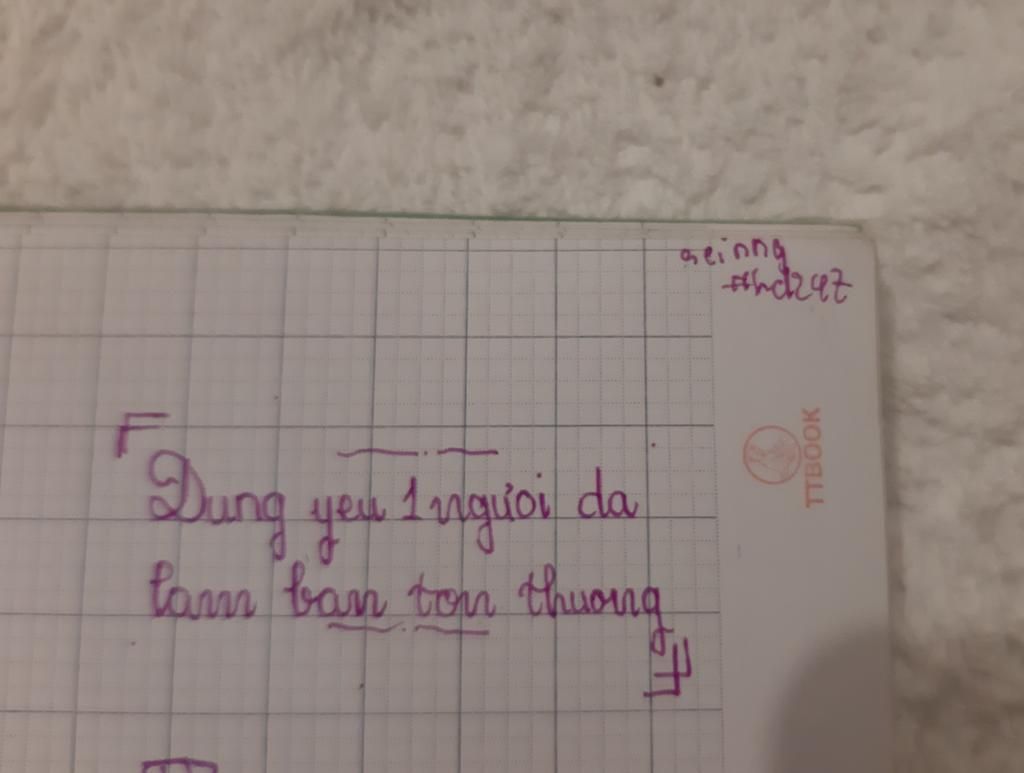 aeinng
tthd2k7
TTBOOK
Dung yeu 1 nguoi da
lam ban ton thuong